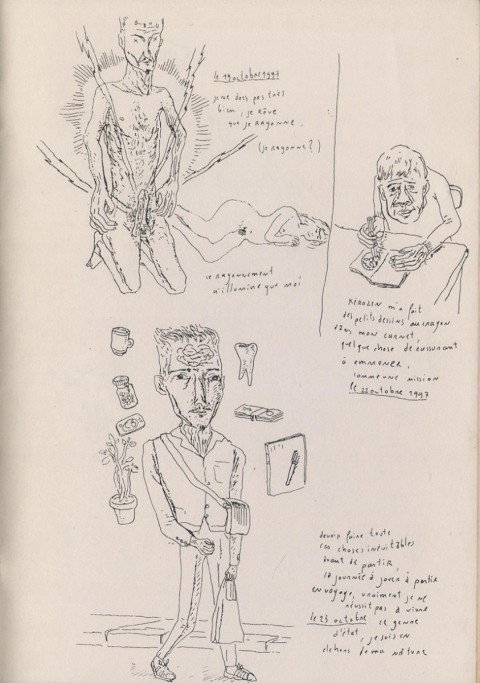 le 19 octobre 1997
je ne dors pas très
bien, je rêve
que je rayonne.
(je rayonne?)
ce rayonnement
n'illumine que moi
m'a fait
des petits dessins au crayon
dans mon carnet,
quelque chose de rassurant
à emmener.
comme une mission
le 22 octobre 1997
devoir faire toute
ces choses inévitables
avant de partir,
la journée à jouer à partir
en voyage, vraiment je ne
réussit pas à vivre
le 23 octobre ce genre
d'état, je suis en
dehors de ma nature